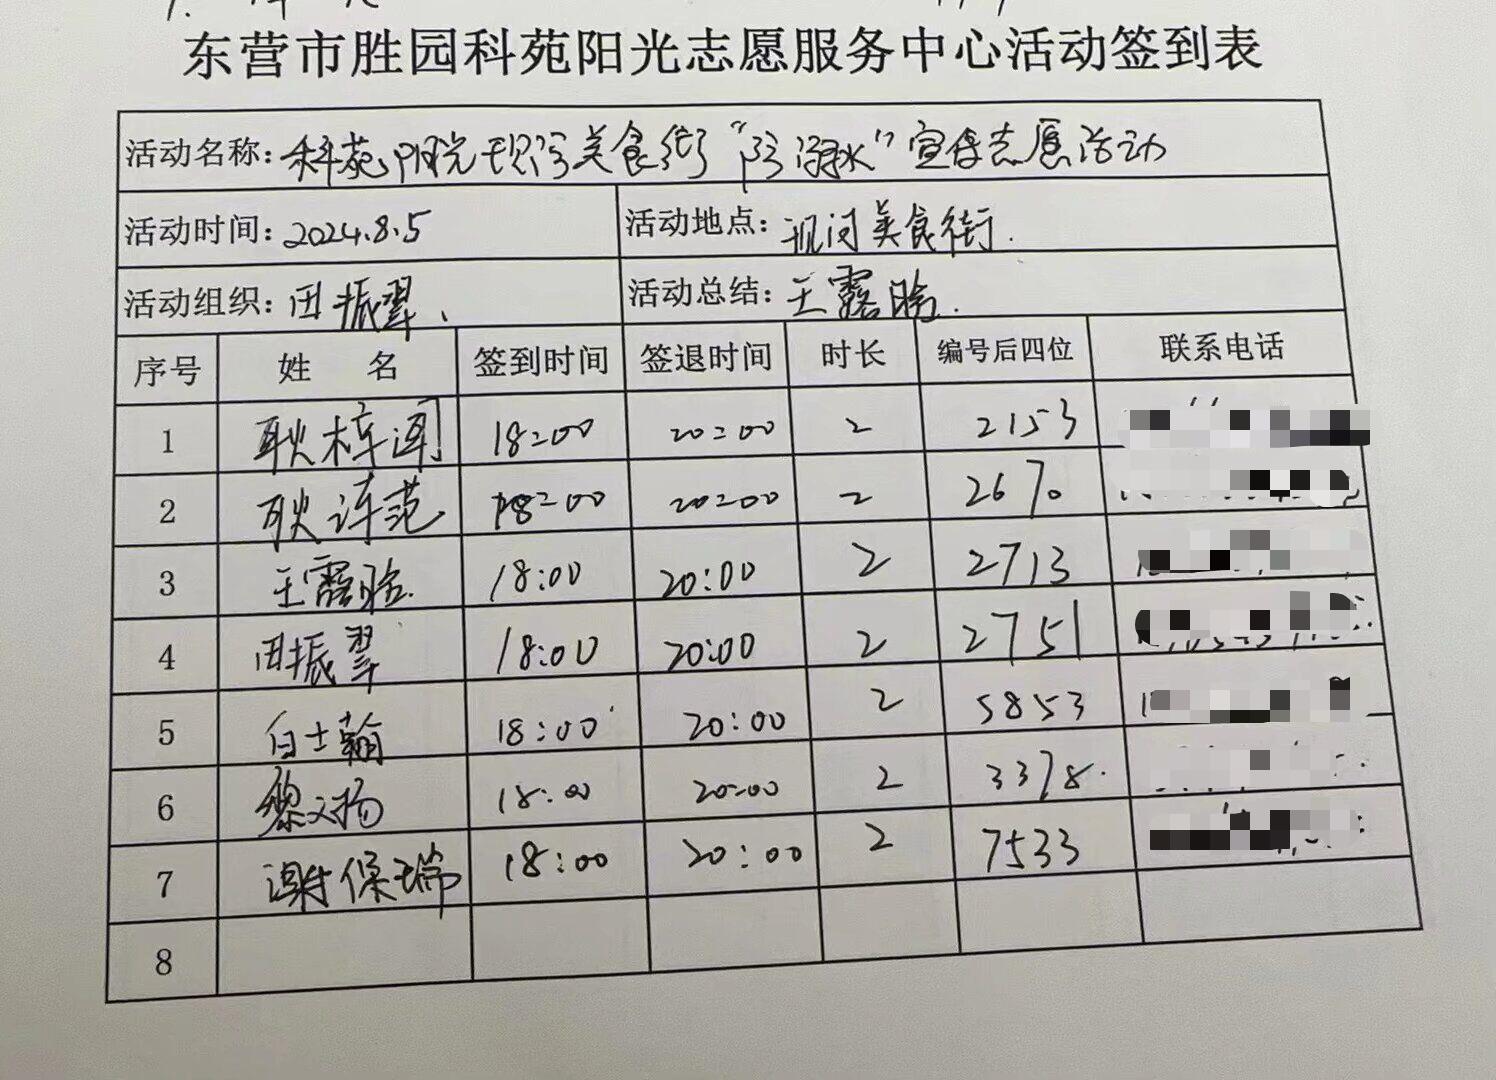 东营市胜园科苑阳光志愿服务中心活动签到表
活动名称: 科苑阳光现河美食街“防溺水”宣传志愿活动
活动时间: 2024.8.5 活动地点: 现河美食街.
活动组织: 田振翠、 活动总结: 王露晗.
序号 姓 名 签到时间 签退时间 时长 编号后四位 联系电话
1 耿梓 18:00 20:00 2 2153
2 耿 范 18:00 20:00 2 2670
3 王露晗. 18:00 20:00 2 2713
4 田振翠 18:00 20:00 2 2751
5 白士翰 18:00 20:00 2 5853
6 黎文扬 18:00 20:00 2 3378.
7 谢保瑞 18:00 20:00 2 7533
8